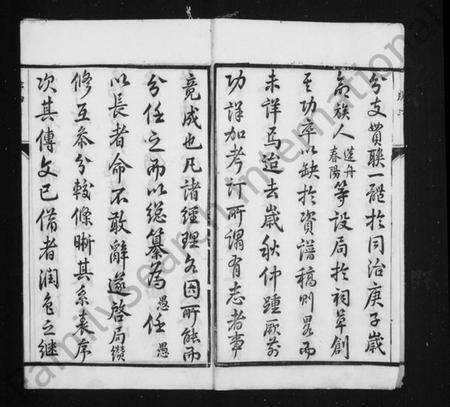 分支貫聯一體於同治庚子歲
命族人蓮舟春陽等設局於祠草創
其功卒以缺於資譜稿則畧而
未詳焉迨去歲秋仲踵厥前
功詳加考訂所謂有志者事
竟成也凡諸經理各因所能而
分任之而以總纂為愚任愚
以長者命不敢辭遂啓局纘
修互參分較條晰其系表序
次其傳文已備者潤色之継
familysearch international